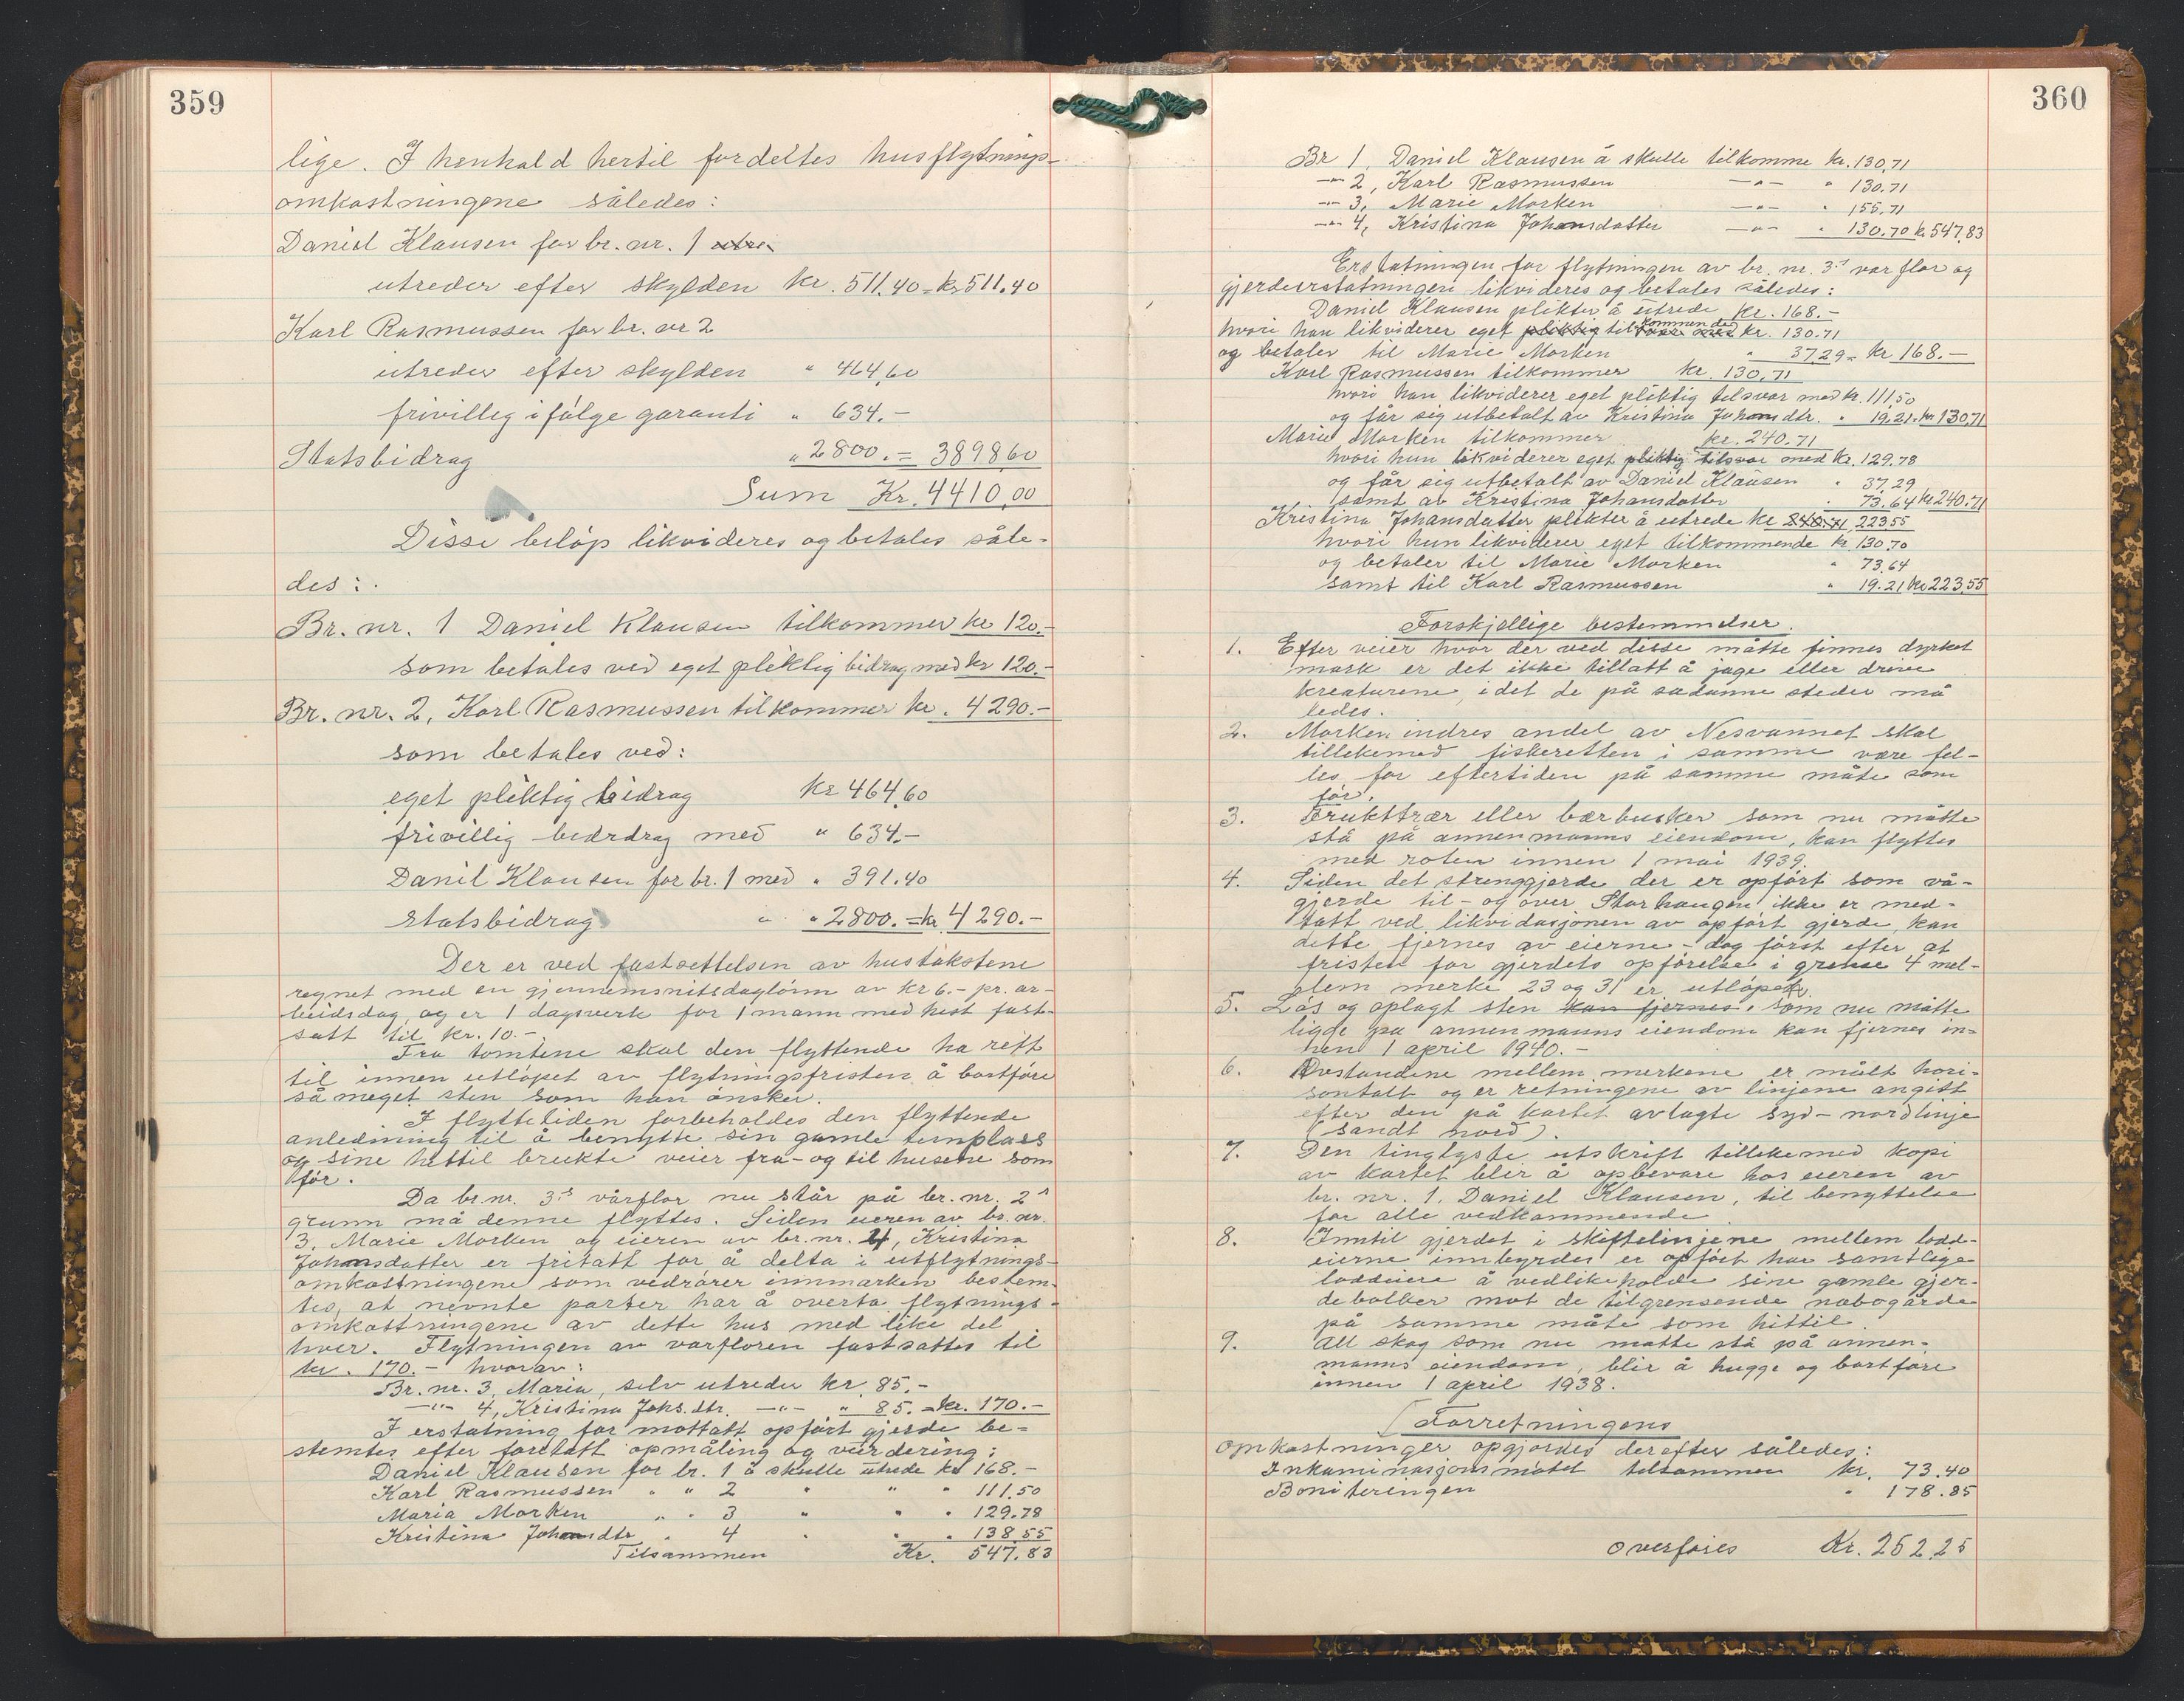 359
lige. I henhold hertil fordeltes husflytnings-
omkostningene således:
Daniel Klausen for br. nr. 1 utre
utreder efter skylden kr. 511.40 = kr 511.40
Karl Rasmussen for br. nr 2
utreder efter skylden " 464,60
frivillig ifølge garanti " 634.-
Statsbidrag " 2800. = 3898,60
Sum Kr. 4410,00
Disse beløp likvideres og betales såle-
des:
Br. nr. 1 Daniel Klausen tilkommer kr 120.-
som betales ved eget pliktig bidrag med kr 120.-
Br. nr. 2, Karl Rasmussen tilkommer kr. 4290.-
som betales ved:
eget pliktig bidrag kr 464,60
frivillig bidrdrag med " 634.-
Danil Klausen for br. 1 med " 391.40
statsbidrag " " 2800. = kr. 4290.-
Der er ved fastsettelsen av hustakstene
regnet med en gjennemsnitsdaglønn av kr 6.- pr. ar-
beidsdag, og er 1 dagsverk for 1 mann med hest fast-
satt til kr. 10.-
Fra tomtene skal den flyttende ha rett
til innen utløpet av flytningsfristen å bortføre
så meget sten som han ønsker.
I flyttetiden forbeholdes den flyttende
anledning til å benytte sin gamle tunplass
og sine hittil brukte veier fra- og til husene som
før.
Da br. nr. 3's vårflor nu står på br. nr. 2's
grunn må denne flyttes. Siden eieren av br. nr.
3, Marie Morken og eieren av br. nr. 4, Kristina
Johansdatter er fritatt for å delta i utflytnings-
omkostningene som vedrører innmarken bestem-
tes, at nevnte parter har å overta flytnings-
omkostningene av dette hus med like del
hver. Flytningen av vårfloren fastsattes til
kr. 170.- hvorav:
Br. nr. 3, Maria, selv utreder kr. 85.-
—"— 4, Kristina Johs.dtr. —"— " 85. = kr. 170.-
I erstatning for mottatt opført gjerde be-
stemtes efter foretatt opmåling og vurdering:
Daniel Klausen for br. 1 å skulle utrede kr 168.-
Karl Rasmussen " " 2 " " " 111.50
Maria Morken " " 3 " " " 129.78
Kristina Johansdtr " 4 " " " 138.55
Tilsammen Kr. 547.83
360
Br 1, Daniel Klausen å skulle tilkomme kr. 130,71
—"— 2, Karl Rasmussen —"— " 130.71
—"— 3, Marie Morken —"— " 155,71
—"— 4, Kristina Johansdatter —"— " 130.70 kr 547,83
Erstatningen for flytningen av br. nr. 3's vårflor og
gjerdeerstatningen likvideres og betales således:
Daniel Klausen plikter å utrede kr. 168.-
hvori han likviderer eget pliktig tilkommende kr. 130.71
og betaler til Marie Morken " 37,29 = kr 168.-
Karl Rasmussen tilkommer kr. 130,71
hvori han likviderer eget pliktig tilsvar med kr. 111.50
og får sig utbetalt av Kristina Johansdtr. " 19.21 = kr 130,71
Marie Morken tilkommer kr. 240.71
hvori hun likviderer eget pliktig tilsvar med kr. 129.78
og får sig utbetalt av Daniel Klausen " 37,29
samt av Kristina Johansdatter " 73.64 kr 240.71
Kristina Johansdatter plikter å utrede kr 240.71 223,55
hvori hun likviderer eget tilkommende kr 130,70
og betaler til Marie Morken " 73,64
samt til Karl Rasmussen " 19.21 kr 223,55
Forskjellige bestemmelser.
1. Efter veier hvor der ved disse måtte finnes dyrket
mark er det ikke tillatt å jage eller drive
kreaturene, idet de på sådanne steder må
ledes.
2. Morken indres andel av Nesvannet skal
tillikemed fiskeretten i samme være fel-
les for eftertiden på samme måte som
før.
3. Frukttrær eller bærbusker som nu måtte
stå på annenmanns eiendom, kan flyttes
med roten innen 1 mai 1939.
4. Siden det strenggjerde der er opført som vå-
gjerde til- og over Storhaugen ikke er med-
tatt ved likvidasjonen av opført gjerde, kan
dette fjernes av eierne - dog først efter at
fristen for gjerdets opførelse i grense 4 mel-
lem merke 23 og 31 er utløpet.
5. Løs og oplagt sten kan fjernes, som nu måtte
ligge på annenmanns eiendom kan fjernes in-
nen 1 april 1940.-
6. Avstandene mellem merkene er målt hori-
sontalt og er retningene av linjene angitt
efter den på kartet avlagte syd - nordlinje
(sandt nord).
7. Den tinglyste utskrift tillikemed kopi
av kartet blir å opbevare hos eieren av
br. nr. 1, Daniel Klausen, til benyttelse
for alle vedkommende
8. Inntil gjerdet i skiftelinjene mellem lodd-
eierne innbyrdes er opført har samtlige
loddeiere å vedlikeholde sine gamle gjer-
debolker mot de tilgrensende nabogårde
på samme måte som hittil.
9. All skog som nu måtte stå på annen-
manns eiendom, blir å hugge og bortføre
innen 1 april 1938.
Forretningens
omkostninger opgjordes derefter således:
Inkaminasjonsmøtet tilsammen kr. 73.40
Boniteringen " 178.85
overføres Kr. 252,25